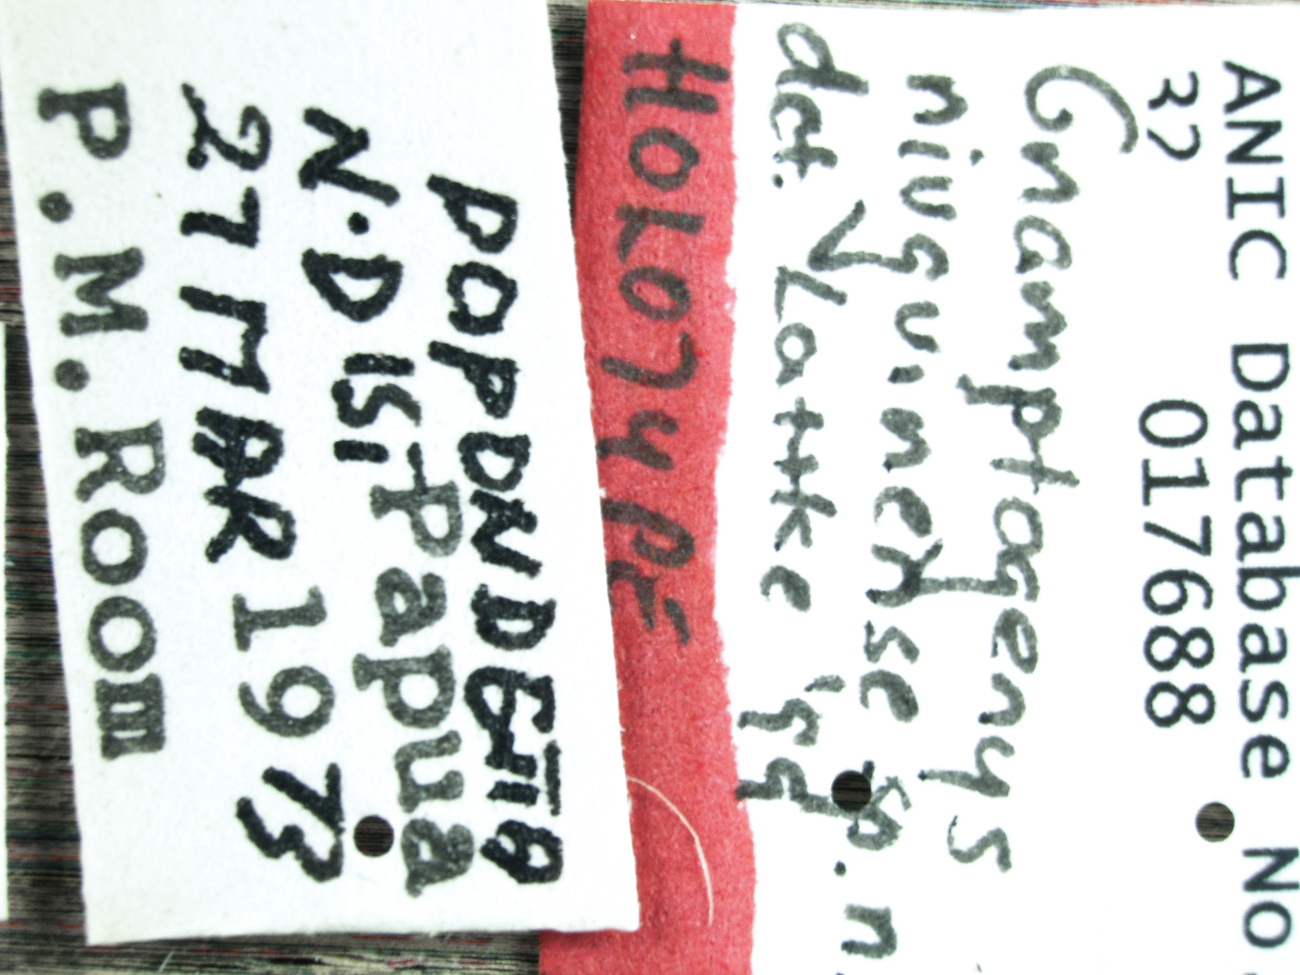 ANIC Database No.
32 017688
Gnamptogenys
niuguinense sp. n.
det. J Lattke '99
HOLOTYPE
POPONDETTA
N. DIST Papua
27 MAR 1973
P. M. Room